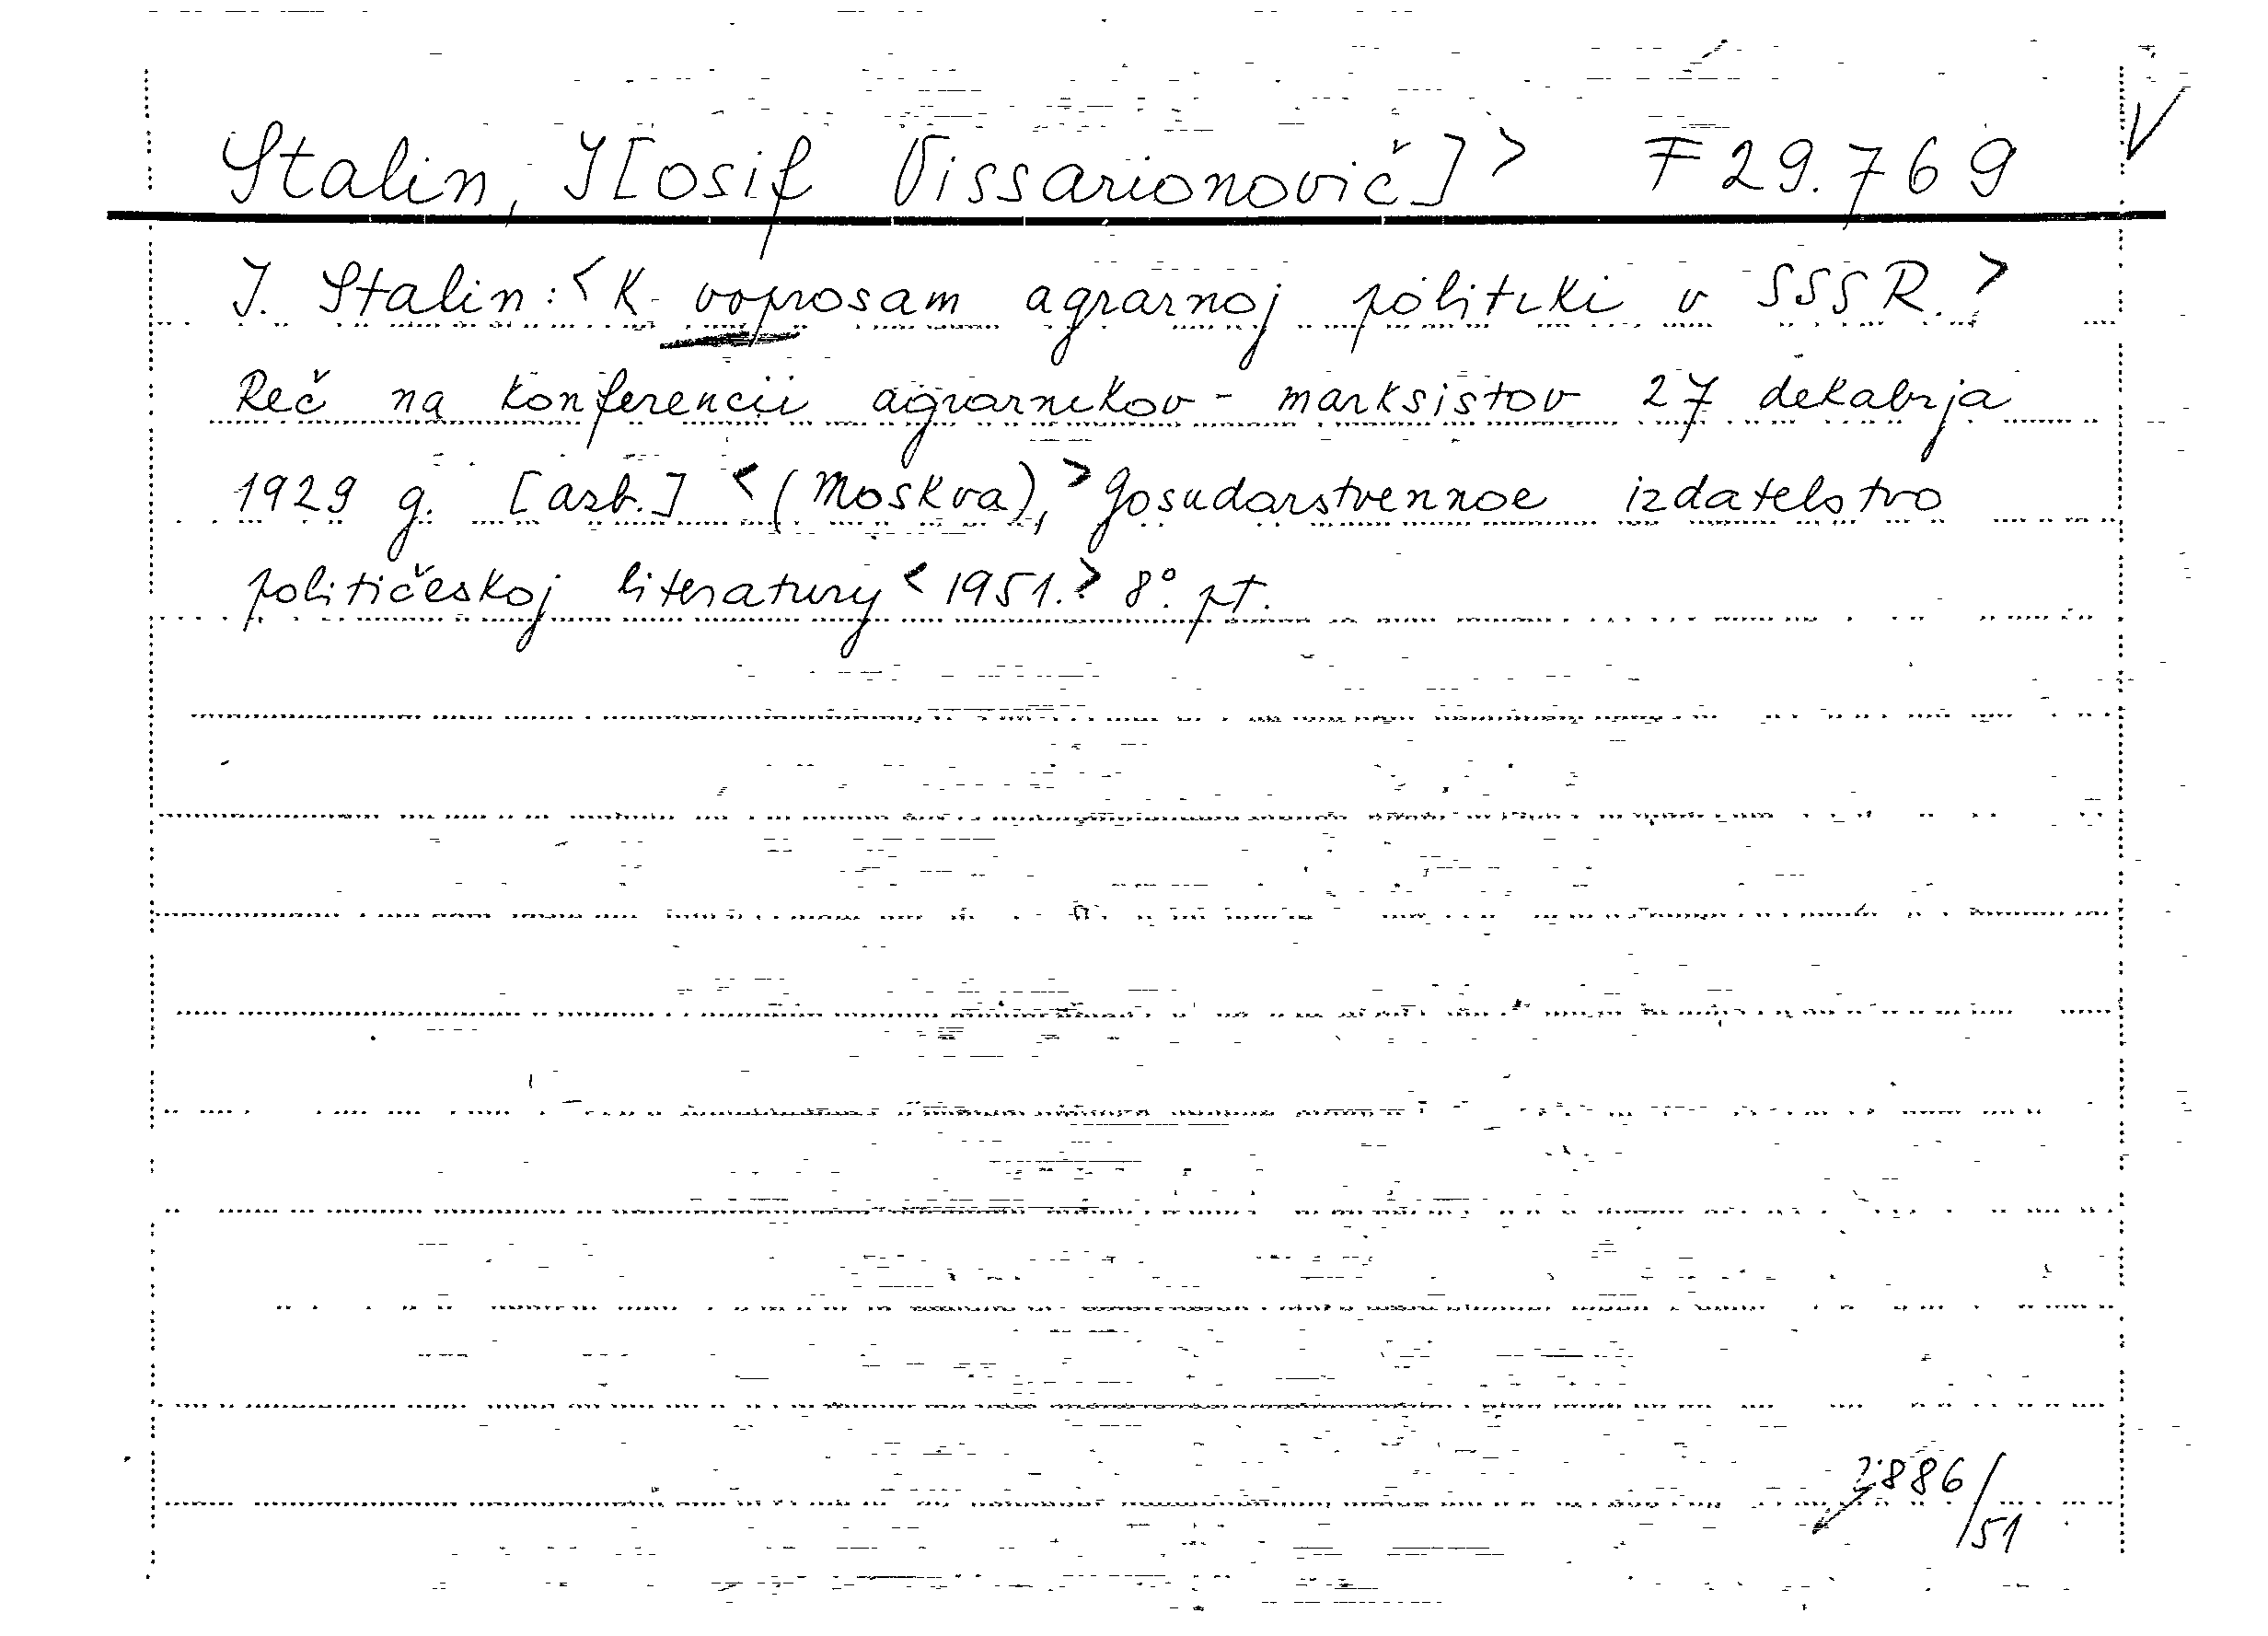 Stalin, J[osif Vissarionovič]> F 29.769 V
J. Stalin: <K voprosam agrarnoj politiki v SSSR.>
Reč na konferencii agrarnikov-marksistov 27 dekabrja
1929 g. [azb.] <(Moskva),> Gosudarstvennoe izdatelstvo
političeskoj literatury <1951.> 8°. pt.
2886/51